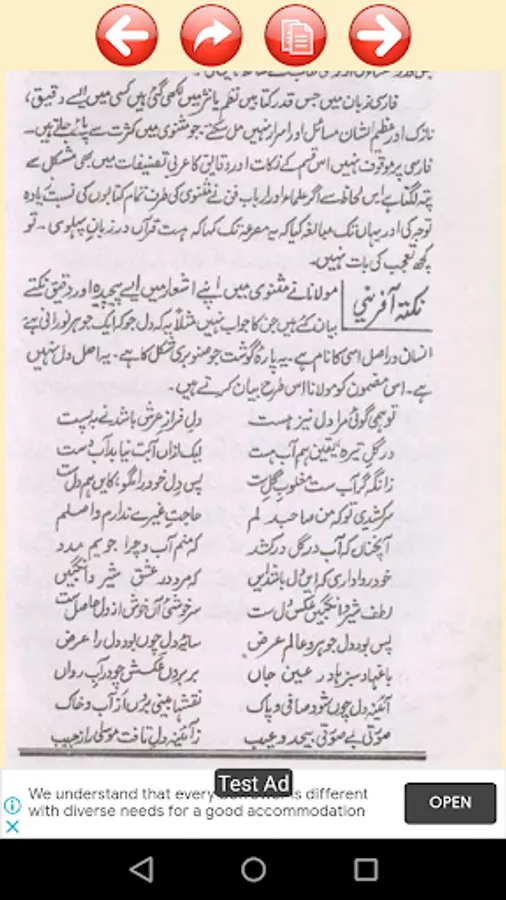 فارسی زبان میں جس قدر کتابیں نظم یا نثر میں لکھی گئی ہیں کسی میں ایسے دقیق،
نازک اور عظیم الشان مسائل اور اسرار نہیں مل سکتے۔ جو مثنوی میں کثرت سے پائے جاتے ہیں۔
فارسی پر موقوف نہیں اس قسم کے نکات اور دقایق کا عربی تصنیفات میں بھی مشکل سے
پتہ لگتا ہے اس لحاظ سے اگر علما اور ارباب فن نے مثنوی کی طرف تمام کتابوں کی نسبت زیادہ
توجہ کی اور یہاں تک مبالغہ کیا کہ یہ مصرعہ تک کہا کہ ہست قرآں در زبان پہلوی۔ تو
کچھ تعجب کی بات نہیں۔
نکتہ آفرینی
مولانا نے مثنوی میں اپنے اشعار میں ایسے پیچیدہ اور دقیق نکتے
بیان کئے ہیں جن کا جواب نہیں مثلاً یہ کہ دل جو کہ ایک جوہر نورانی ہے
انسان دراصل اسی کا نام ہے۔ یہ پارۂ گوشت جو صنوبری شکل کا ہے۔ یہ اصل دل نہیں
ہے۔ اسی مضمون کو مولانا اس طرح بیان کرتے ہیں۔
تو ہمی گوئی مرا دل نیز ہست دل فراز عرش باشد نے بہ پست
در گل تیرہ یقین ہم آب ہست لیک ازاں آبت نیاید آب دست
زانکہ گر آب ست مغلوب گل ست پس دل خود را مگو، کایں ہم دل ست
سرکشیدی تو کہ من صاحبدلم حاجت غیرے ندارم واصلم
آنچناں کہ آب در گل در کشد کہ منم آب و چرا جویم مدد
خود روا داری کہ ایں دل باشد ایں کہ مرد در عشق شیر و انگبیں
لطف شیر و انگبیں عکس دل ست سرخوشی آں خوش از دل حاصل ست
پس بود دل جوہر و عالم عرض سایۂ دل چوں بود دل را عرض
باغہا و سبزہا در عین جاں بر بروں عکسش چو در آب رواں
آئینہ دل چوں شود صافی و پاک نقشہا بینی بروں از آب و خاک
صورتی بے صورتی بیحد و عیب ز آئینہ دل تافت موسیٰ را ز جیب
We understand that every is different
with diverse needs for a good accommodation
Test Ad
OPEN